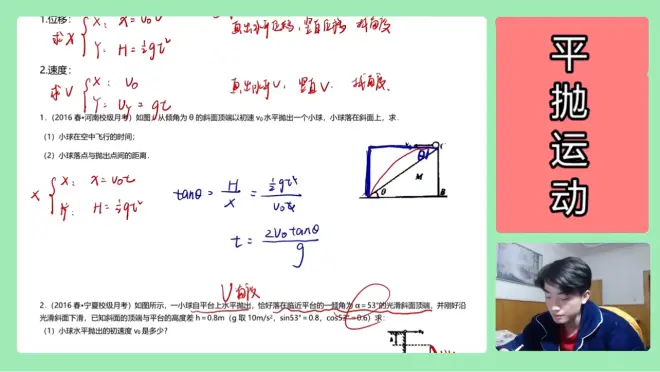 1.位移:
求X
X: X=V₀t
Y: H=½gt²
画出水平位移,竖直位移 找角度
2.速度:
求V
X: V₀
Y: Vy=gt
画出水平V,竖直V. 找角度.
1.(2016 春•河南校级月考)如图,从倾角为 θ 的斜面顶端以初速 v₀ 水平抛出一个小球,小球落在斜面上,求.
(1)小球在空中飞行的时间;
(2)小球落点与抛出点间的距离.
X
X: X=V₀t
Y: H=½gt²
tanθ = H/X = ½gt²/V₀t
t = 2V₀tanθ/g
θ
M
θ
B
V角度
2.(2016 春•宁夏校级月考)如图所示,一小球自平台上水平抛出,恰好落在临近平台的一倾角为 α=53°的光滑斜面顶端,并刚好沿
光滑斜面下滑,已知斜面的顶端与平台的高度差 h=0.8m(g 取 10m/s²,sin53°=0.8,cos53°=0.6)求:
(1)小球水平抛出的初速度 v₀是多少?
平抛运动